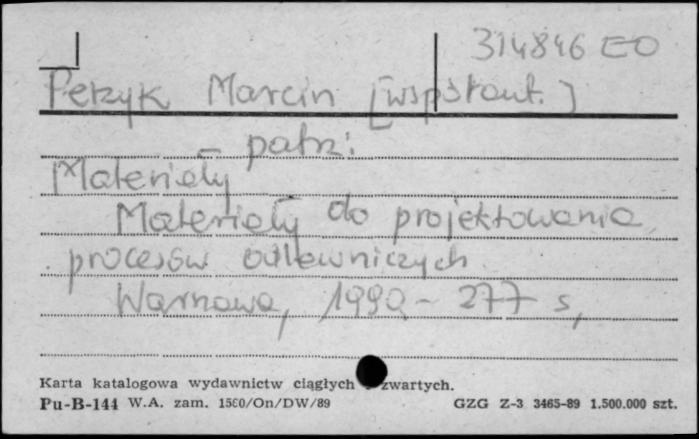 314846 EO
Perzyk Marcin [współaut.]
patrz:
Materiały
Materiały do projektowania
procesów odlewniczych
Warszawa, 1990.- 277 s,
Karta katalogowa wydawnictw ciągłych i zwartych.
Pu-B-144 W.A. zam. 1560/On/DW/89 GZG Z-3 3465-89 1.500.000 szt.